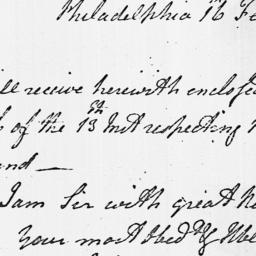 Philadelphia 16 Fe
ll receive herewith enclose
of the 13th Inst respecting
and —
I am Sir with great
Your most Obed &